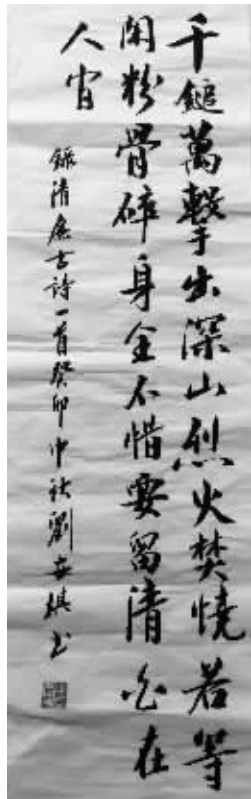 千鎚萬擊出深山烈火焚燒若等
閑粉骨碎身全不惜要留清白在
人间
錄清廉古詩一首癸卯中秋劉安棋书